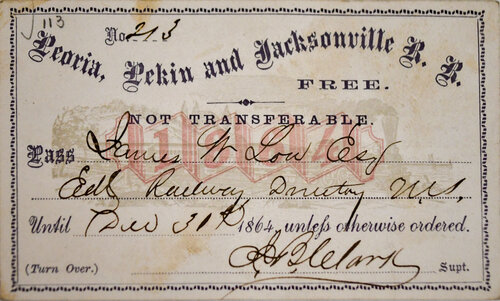 113
No. 213
Peoria, Pekin and Jacksonville R. R.
FREE.
NOT TRANSFERABLE.
1864
Pass James W Low Esq
Ed Railway Directory U.S.
Until Dec 31st 1864, unless otherwise ordered.
(Turn Over.) Supt.